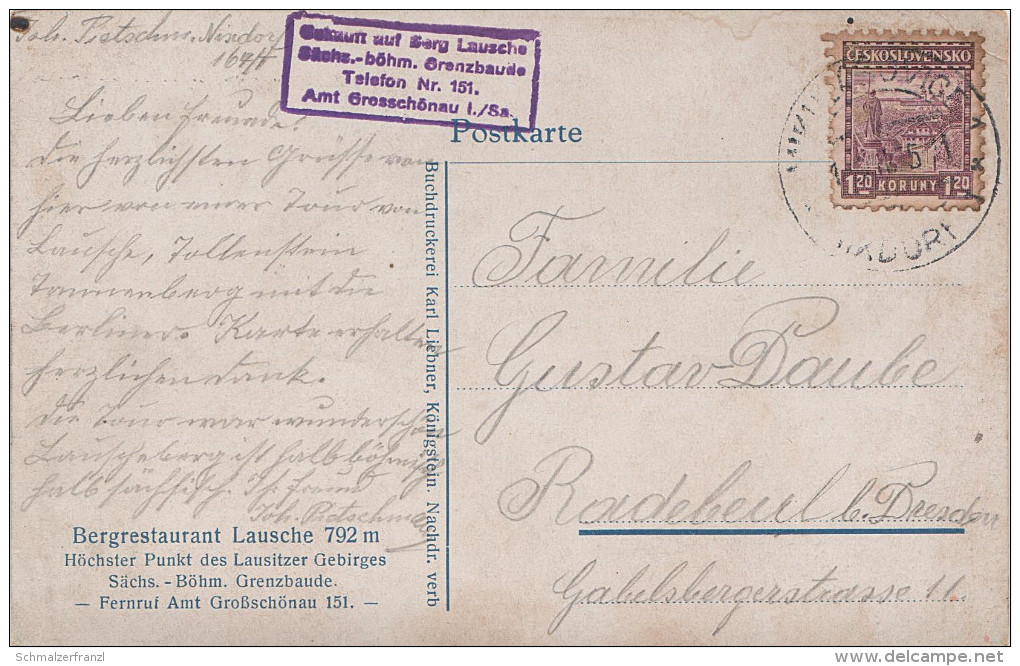 Joh. Pietschm. Nixdorf
164/H
Gekauft auf Berg Lausche
Sächs.-böhm. Grenzbaude
Telefon Nr. 151.
Amt Grosschönau i./Sa.
ČESKOSLOVENSKO
1.20 KORUNY 1.20
Postkarte
Lieben Freunde!
Die herzlichsten Grüsse von
hier von einer Tour von
Lausche, Tollenstein
Tannenberg mit die
Berliner. Karte erhalten
herzlichen Dank.
Die Tour war wunderschön
Lauscheberg ist halb böhmisch
halb sächsisch. Ihr Freund
Joh. Pietschm
Buchdruckerei Karl Liebner, Königstein. Nachdr. verb
Familie
Gustav Daube
Radebeul b. Dresden
Gabelsbergerstrasse 11.
Bergrestaurant Lausche 792 m
Höchster Punkt des Lausitzer Gebirges
Sächs. - Böhm. Grenzbaude.
— Fernruf Amt Großschönau 151. —
Schmalzerfranzl
delcampe.net